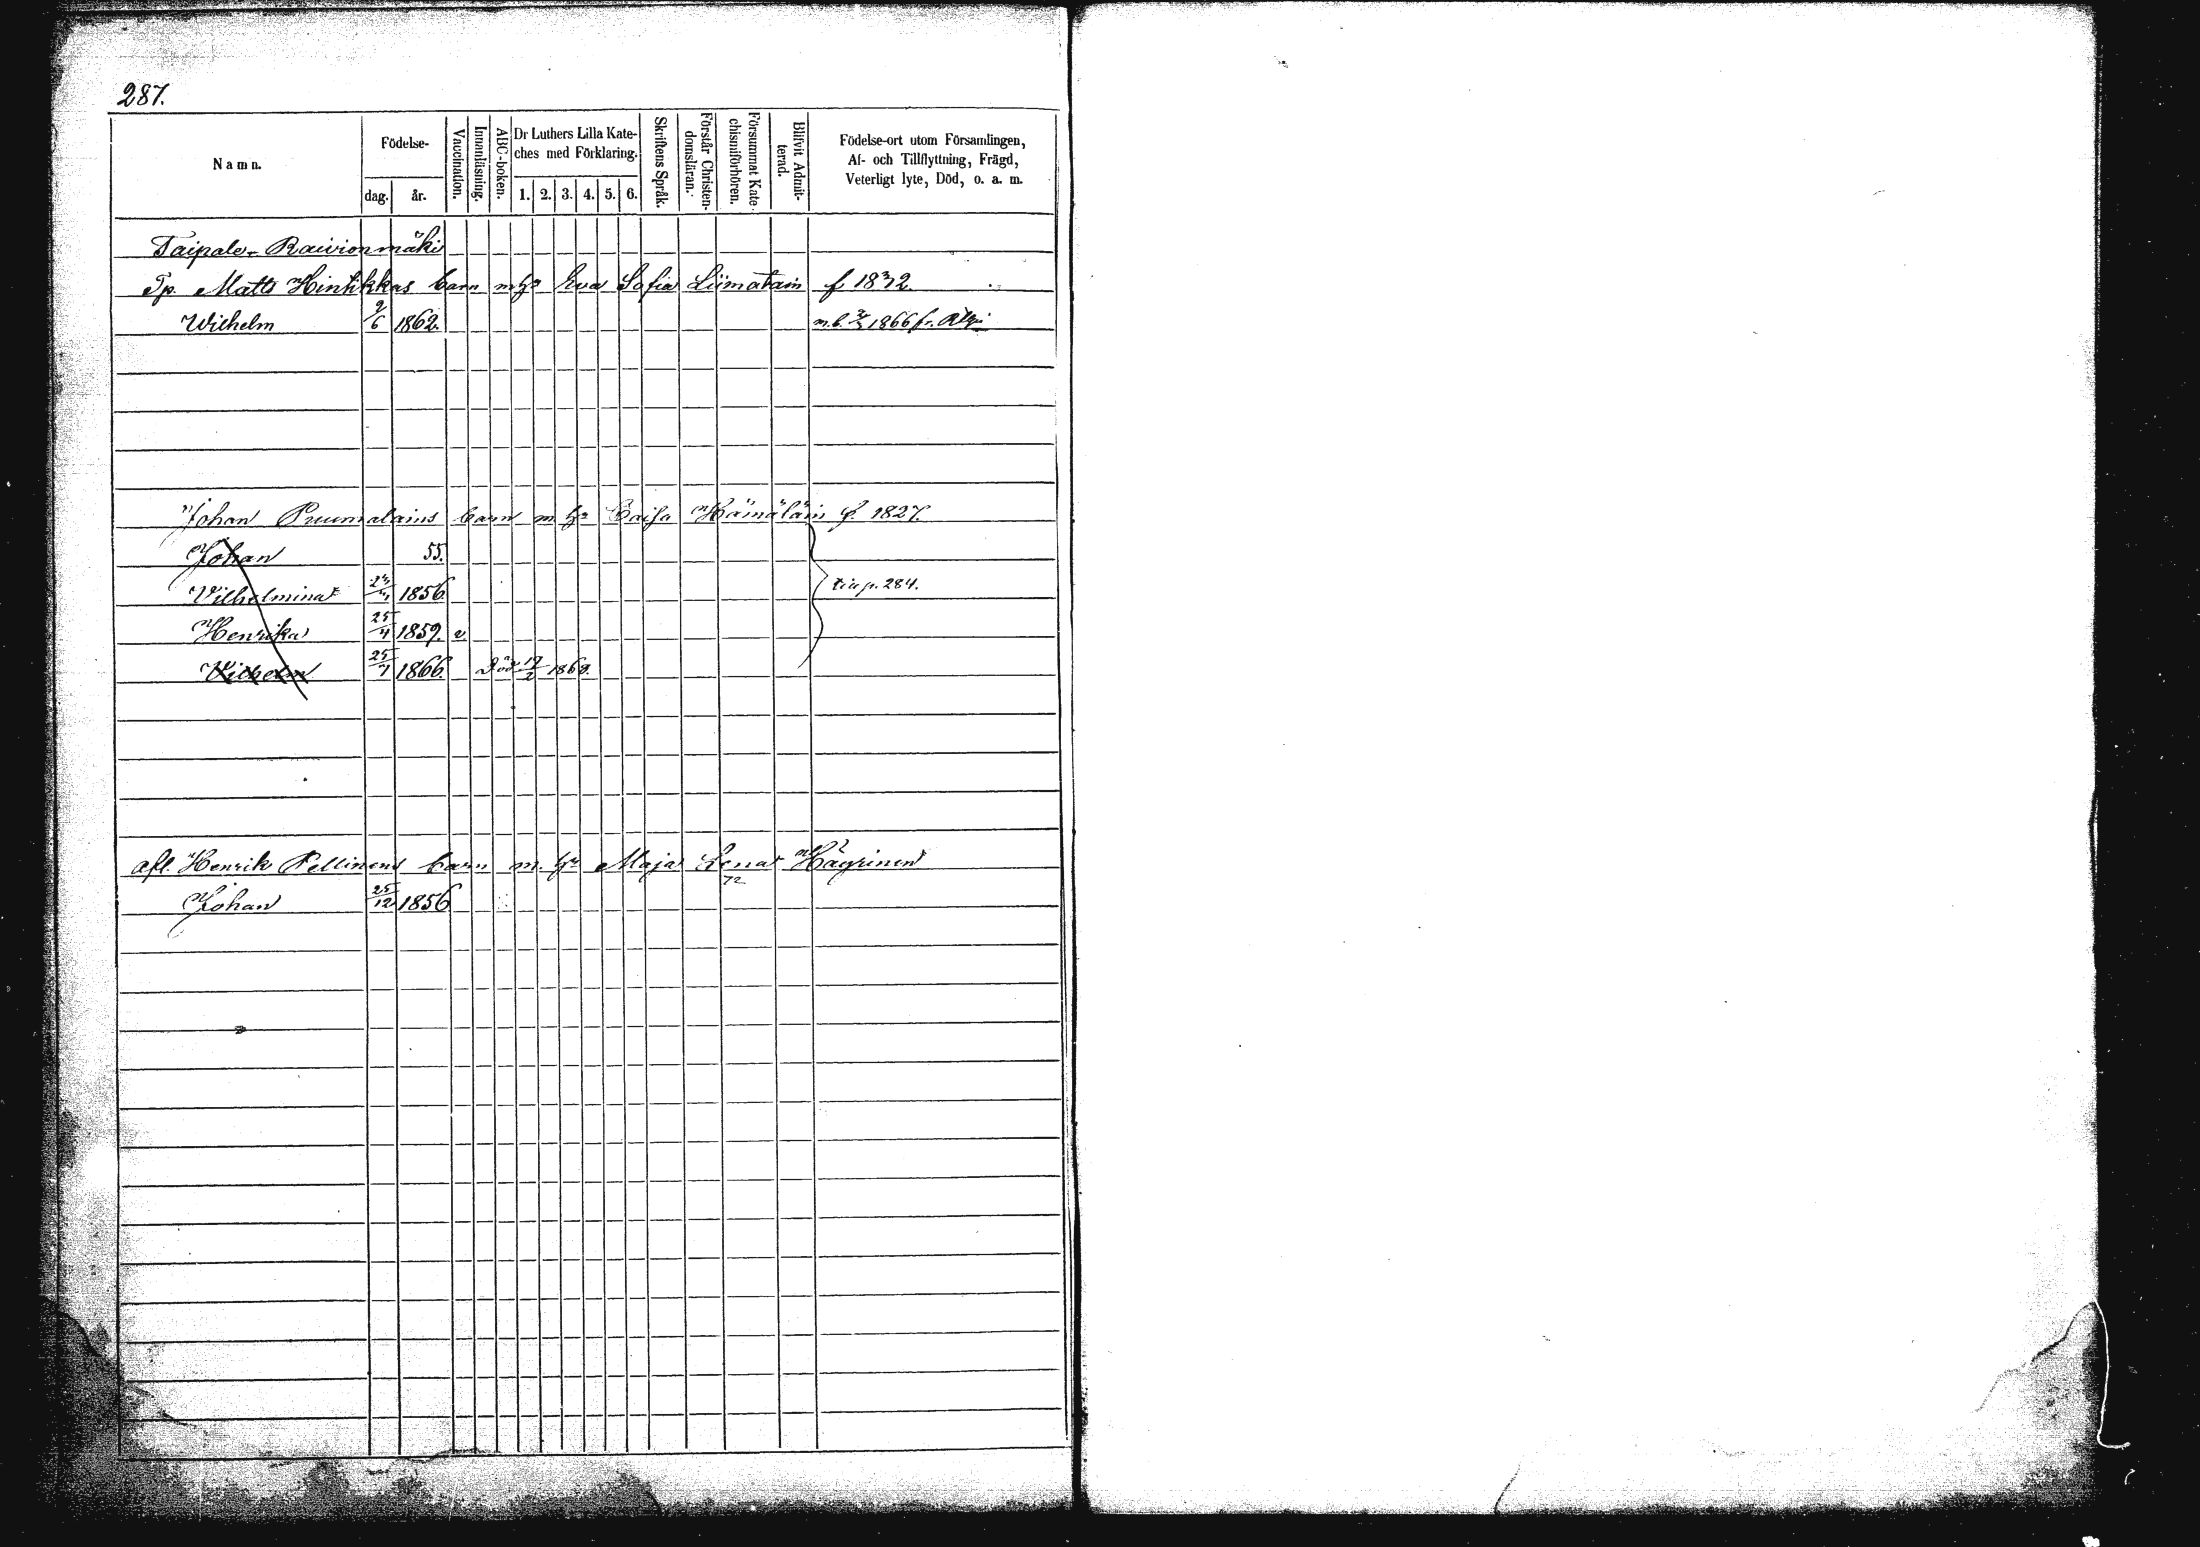 287.
Namn.
Födelse-
dag.
år.
Vaccination.
Innanläsning.
ABC-boken.
Dr Luthers Lilla Kate-
ches med Förklaring.
1. 2. 3. 4. 5. 6.
Skriftens Språk.
Förstår Christen-
domsläran.
Försummat Kate-
chismiförhören.
Blifvit Admit-
terad.
Födelse-ort utom Församlingen,
Af- och Tillflyttning, Frägd,
Veterligt lyte, Död, o. a. m.
Taipale- Raivionmäki
Tp. Matts Hintikkas barn m h:u Eva Sofia Liimatain f 1832.
Wilhelm 9/6 1862. m.b. 1866 fr.
Johan Puumalains barn m h:u Caisa Hämäläin f. 1827.
Johan 55.
Vilhelmina 1856 p. 284.
Henrika 25/4 1859. v
Vilhelm 25/7 1866. Död 19/2 1868.
afl. Henrik Pellinens barn m. h:u Maja Lena Häyrinen
72
Johan 25/12 1856